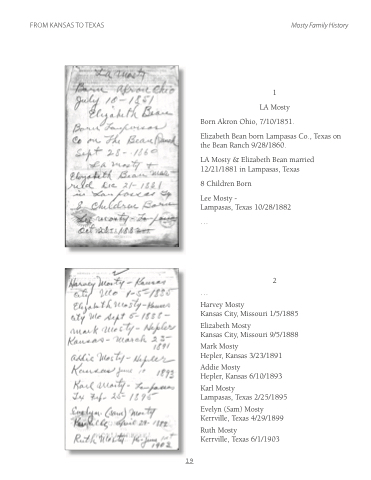 FROM KANSAS TO TEXAS
Mosty Family History
LA Mosty
Born Akron Ohio
July 10-1851
Elizabeth Bean
Born Lampasas
Co on The Bean Ranch
Sept 28-1860
LA Mosty +
Elizabeth Bean
Dec 21-1881
in Lampasas
8 Children Born
Lee Mosty-
Oct 28-1882
1
LA Mosty
Born Akron Ohio, 7/10/1851.
Elizabeth Bean born Lampasas Co., Texas on
the Bean Ranch 9/28/1860.
LA Mosty & Elizabeth Bean married
12/21/1881 in Lampasas, Texas
8 Children Born
Lee Mosty -
Lampasas, Texas 10/28/1882
...
Harvey Mosty-Kansas
City Mo
Elizabeth Mosty-
City Mo Sept 5-1888-
Mark Mosty-Hepler
Kansas-March 23-
1891
Addie Mosty-Hepler
Kansas June 10 1893
Karl Mosty-Lampasas
Tx Feb-25-1895
Evelyn (Sam) Mosty
April 29-
Ruth Mosty
2
...
Harvey Mosty
Kansas City, Missouri 1/5/1885
Elizabeth Mosty
Kansas City, Missouri 9/5/1888
Mark Mosty
Hepler, Kansas 3/23/1891
Addie Mosty
Hepler, Kansas 6/10/1893
Karl Mosty
Lampasas, Texas 2/25/1895
Evelyn (Sam) Mosty
Kerrville, Texas 4/29/1899
Ruth Mosty
Kerrville, Texas 6/1/1903
19